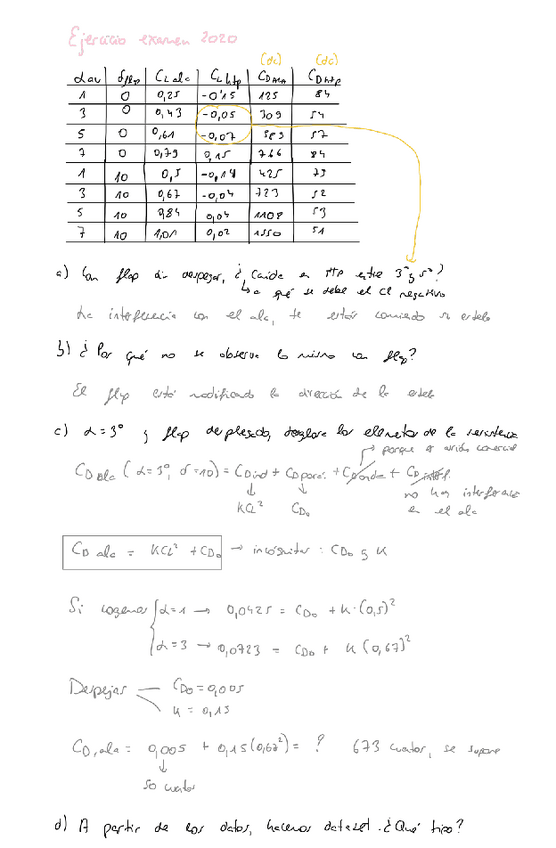 Ejercicio examen 2020
(dc) (dc)
α av δflap CL alc CL htp CD ala CD htp
1 0 0,25 -0'15 125 84
3 0 0,43 -0,05 309 54
5 0 0,61 -0,07 583 57
7 0 0,79 0,15 766 84
1 10 0,5 -0,14 425 79
3 10 0,67 -0,04 723 52
5 10 0,84 0,04 1108 53
7 10 1,01 0,02 1550 51
a) Con flap sin desplegar, ¿ Caida en HTP entre 3° y 5°?
↳ a qué se debe el CL negativo
La interferencia con el ala, te están comiendo su estela
b) ¿Por qué no se observa lo mismo con flap?
El flap está modificando la dirección de la estela
c) α = 3° y flap desplegado, desglosa los elementos de la resistencia
→ porque es avión comercial
CD ala (α=3°, δ=10) = CD ind + CD pará. + CD onda + CD interf.
↓ ↓ no hay interferencia
KCL² CD₀ en el ala
CD ala = KCL² + CD₀ → incógnitas : CD₀ y K
Si cogemos α=1 → 0,0425 = CD₀ + K·(0,5)²
α=3 → 0,0723 = CD₀ + K (0,67)²
Despejar CD₀ = 0,005
K = 0,15
CD,ala = 0,005 + 0,15(0,67²) = ? 673 cuator, se supone
↓
50 cuator
d) A partir de los datos, hacemos dataset. ¿Qué tipo?